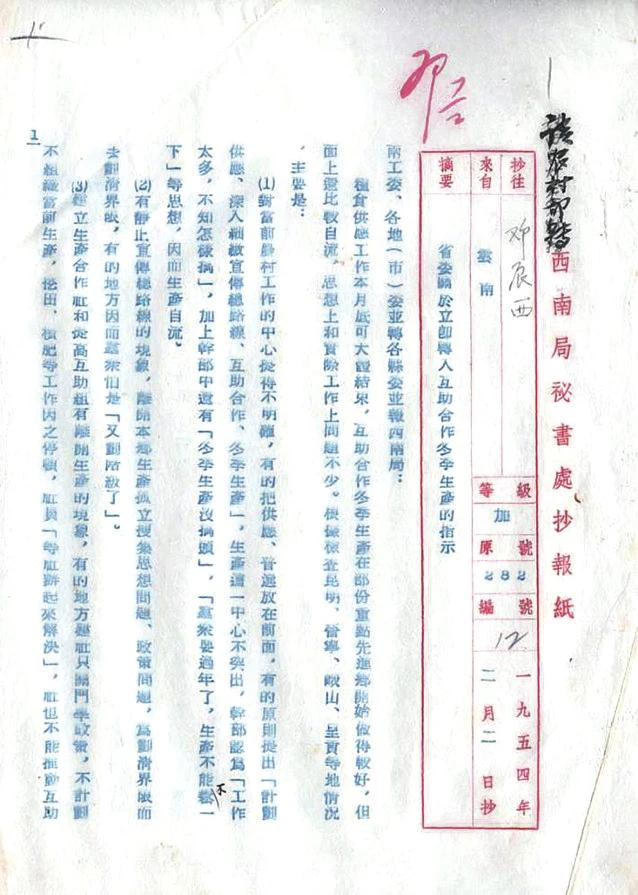 西南局祕書處抄報紙
抄往
來自 雲南
等級 加
原號 282
編號 12
一九五四年
二月二日抄
摘要 省委關於立卽轉入互助合作冬季生產的指示
兩工委、各地（市）委並轉各縣委並報西南局：
糧食供應工作本月底可大體結束，互助合作冬季生產在部份重點先進鄉開始做得較好，但
面上還比較自流，思想上和實際工作上問題不少。根據檢查昆明、晉寧、峨山、呈貢等地情況
，主要是：
(1)對當前農村工作的中心提得不明確，有的把供應、普選放在前面，有的原則提出「計劃
供應、深入細緻宣傳總路線、互助合作、冬季生產」，生產這一中心不突出，幹部認爲「工作
太多，不知怎樣搞」，加上幹部中還有「冬季生產沒搞頭」，「羣衆要過年了，生產不能緊一
下」等思想，因而生產自流。
(2)有靜止宣傳總路線的現象，離開本鄉生產孤立搜集思想問題、政策問題，爲劃淸界限而
去劃淸界限，有的地方因而羣衆怕是「又劃階級了」。
(3)建立生產合作社和提高互助組有離開生產的現象，有的地方建社只關門學政策，不計劃
不組織當前生產，挖田、積肥等工作因之停頓，社員「等社辦起來解決」，社也不能推動互助
1